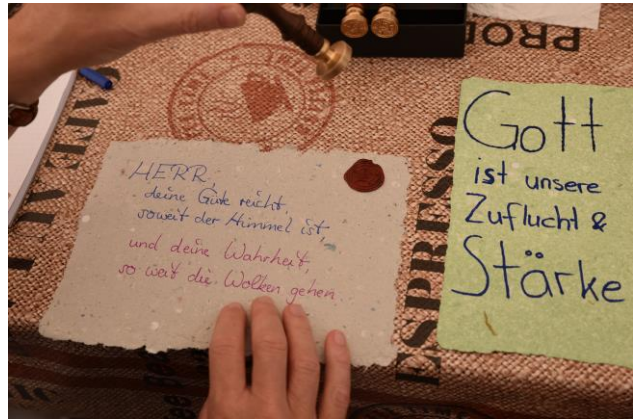 HERR,
deine Güte reicht,
soweit der Himmel ist,
und deine Wahrheit,
so weit die Wolken gehen.
Gott
ist unsere
Zuflucht &
Stärke
ESPRESSO